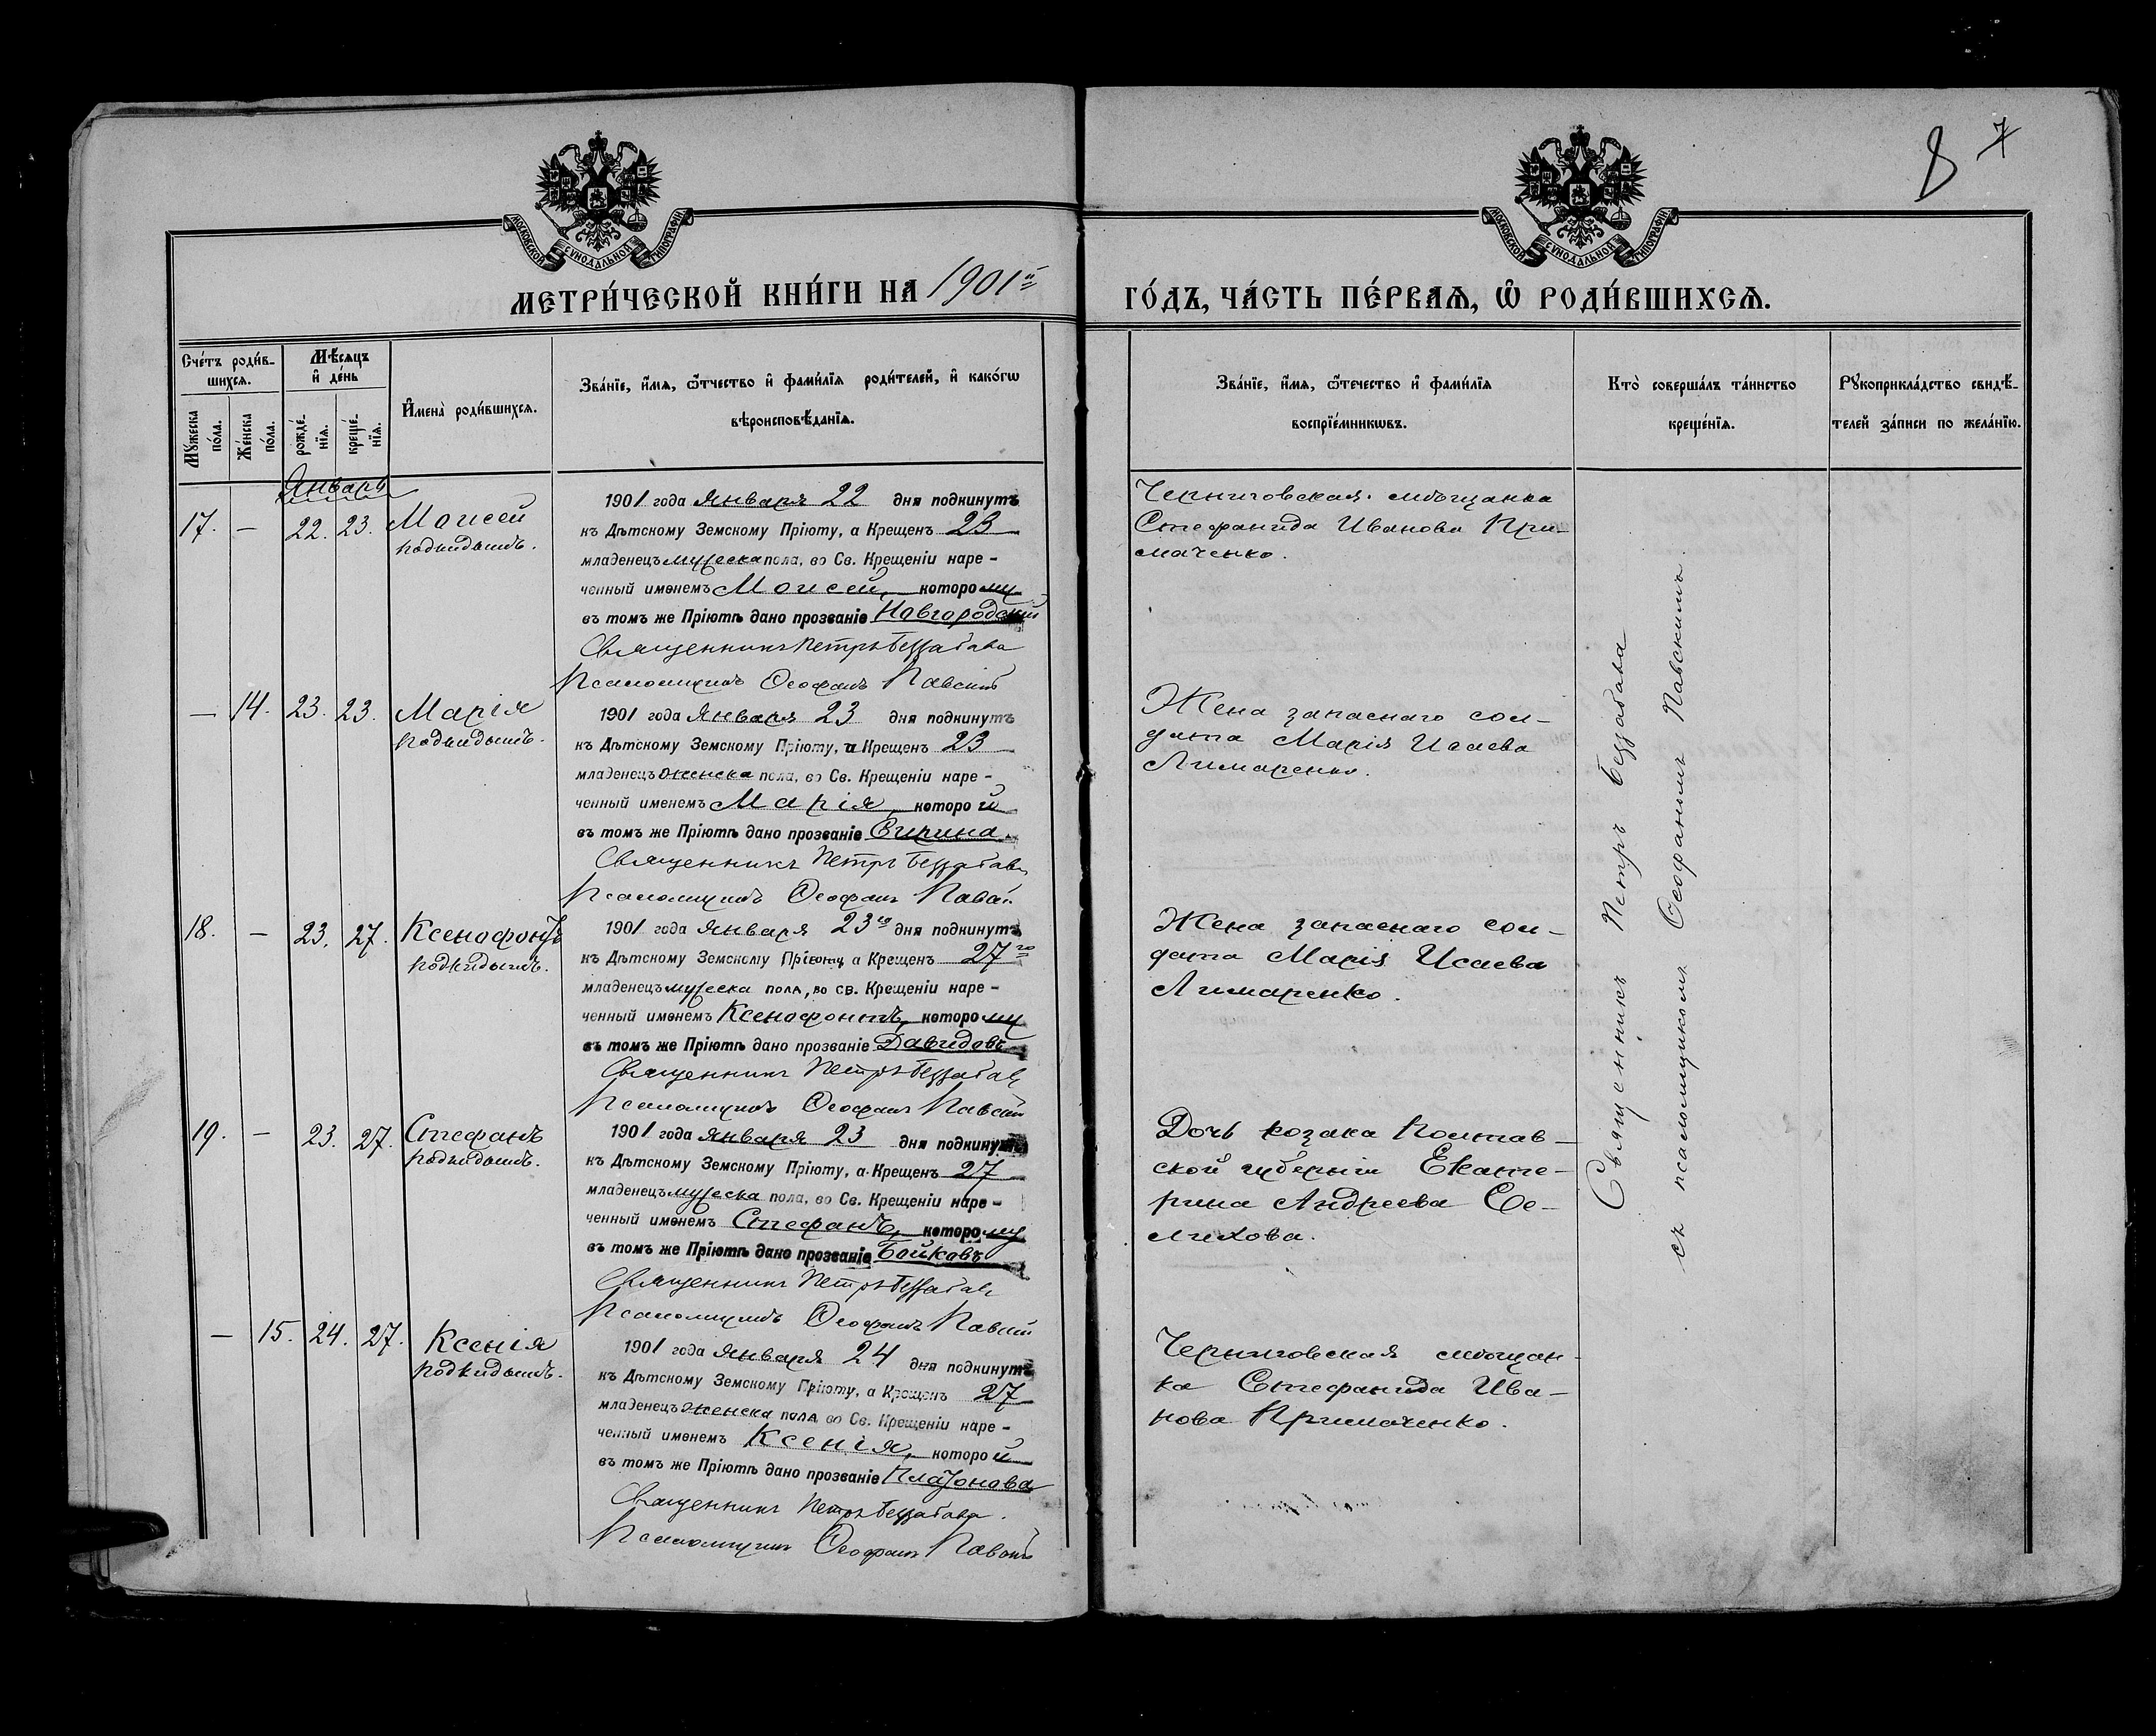 8 7
МОСКОВСКОЙ СУНОДАЛЬНОЙ ТИПОГРАФІИ
МОСКОВСКОЙ СУНОДАЛЬНОЙ ТИПОГРАФІИ
МЕТРИ́ЧЕСКОЙ КНИ́ГИ НА 1901й
ГО́ДЪ, ЧА́СТЬ ПЕ́РВАѦ, Ѡ҆ РОДИ́ВШИХСѦ.
Сче́тъ роди́в-
шихсѧ.
Мѣ́сѧцъ
и҆ де́нь
Мꙋ́жеска по́ла.
Же́нска по́ла.
рожде́-нїѧ.
креще́-нїѧ.
И҆мена̀ роди́вшихсѧ.
Зва́нїе, и҆́мѧ, ѻ҆́тчество и҆ фами́лїѧ роди́телей, и҆ како́гѡ
вѣроисповѣ́данїѧ.
Зва́нїе, и҆́мѧ, ѻ҆те́чество и҆ фами́лїѧ
воспрїе́мникѡвъ.
Кто̀ соверша́лъ та́инство
креще́нїѧ.
Рꙋкоприкла́дство свидѣ́-
телей за́писи по жела́нїю.
Январь
17. — 22. 23. Моисей
подкидышъ.
1901 года Января 22 дня подкинутъ
къ Дѣтскому Земскому Пріюту, а Крещенъ 23
младенецъ мужеска пола, во Св. Крещеніи наре-
ченный именемъ Моисей, которому
въ томъ же Пріютѣ дано прозваніе Новгородский
Священникъ Петръ Беззабава
Псаломщикъ Ѳеофанъ Павскій
Черниговская мѣщанка
Стефанида Иванова При-
маченко.
— 14. 23. 23. Марія
подкидышъ.
1901 года Января 23 дня подкинутъ
къ Дѣтскому Земскому Пріюту, а Крещенъ 23
младенецъ женска пола, во Св. Крещеніи наре-
ченный именемъ Марія, которой
въ томъ же Пріютѣ дано прозваніе
Священникъ Петръ Беззабава
Псаломщикъ Ѳеофанъ
Жена запаснаго сол-
дата Марія Исаева
Лимаренко.
18. — 23. 27. Ксенофонтъ
подкидышъ.
1901 года Января 23го дня подкинутъ
къ Дѣтскому Земскому Пріюту а Крещенъ 27го
младенецъ мужеска пола, во св. Крещеніи наре-
ченный именемъ Ксенофонтъ, которому
въ томъ же Пріютѣ дано прозваніе Давидовъ
Священникъ Петръ Беззабава
Псаломщикъ Ѳеофанъ Павскій
Жена запаснаго сол-
дата Марія Исаева
Лимаренко.
19. — 23. 27. Стефанъ
подкидышъ.
1901 года Января 23 дня подкинутъ
къ Дѣтскому Земскому Пріюту, а Крещенъ 27
младенецъ мужеска пола, во Св. Крещеніи наре-
ченный именемъ Стефанъ, которому
въ томъ же Пріютѣ дано прозваніе Бойковъ
Священникъ Петръ Беззабава
Псаломщикъ Ѳеофанъ Павскій
Дочь козака Полтав-
ской губерніи Екате-
рина Андреева Се-
лихова.
— 15. 24. 27. Ксенія
подкидышъ.
1901 года Января 24 дня подкинутъ
къ Дѣтскому Земскому Пріюту, а Крещенъ 27
младенецъ женска пола во Св. Крещеніи наре-
ченный именемъ Ксенія, которой
въ томъ же Пріютѣ дано прозваніе Платонова
Священникъ Петръ Беззабава.
Псаломщикъ Ѳеофанъ Павскій
Черниговская мѣщан-
ка Стефанида Ива-
нова Примаченко.
Священникъ Петръ Беззабава
съ псаломщикомъ Ѳеофаномъ Павскимъ